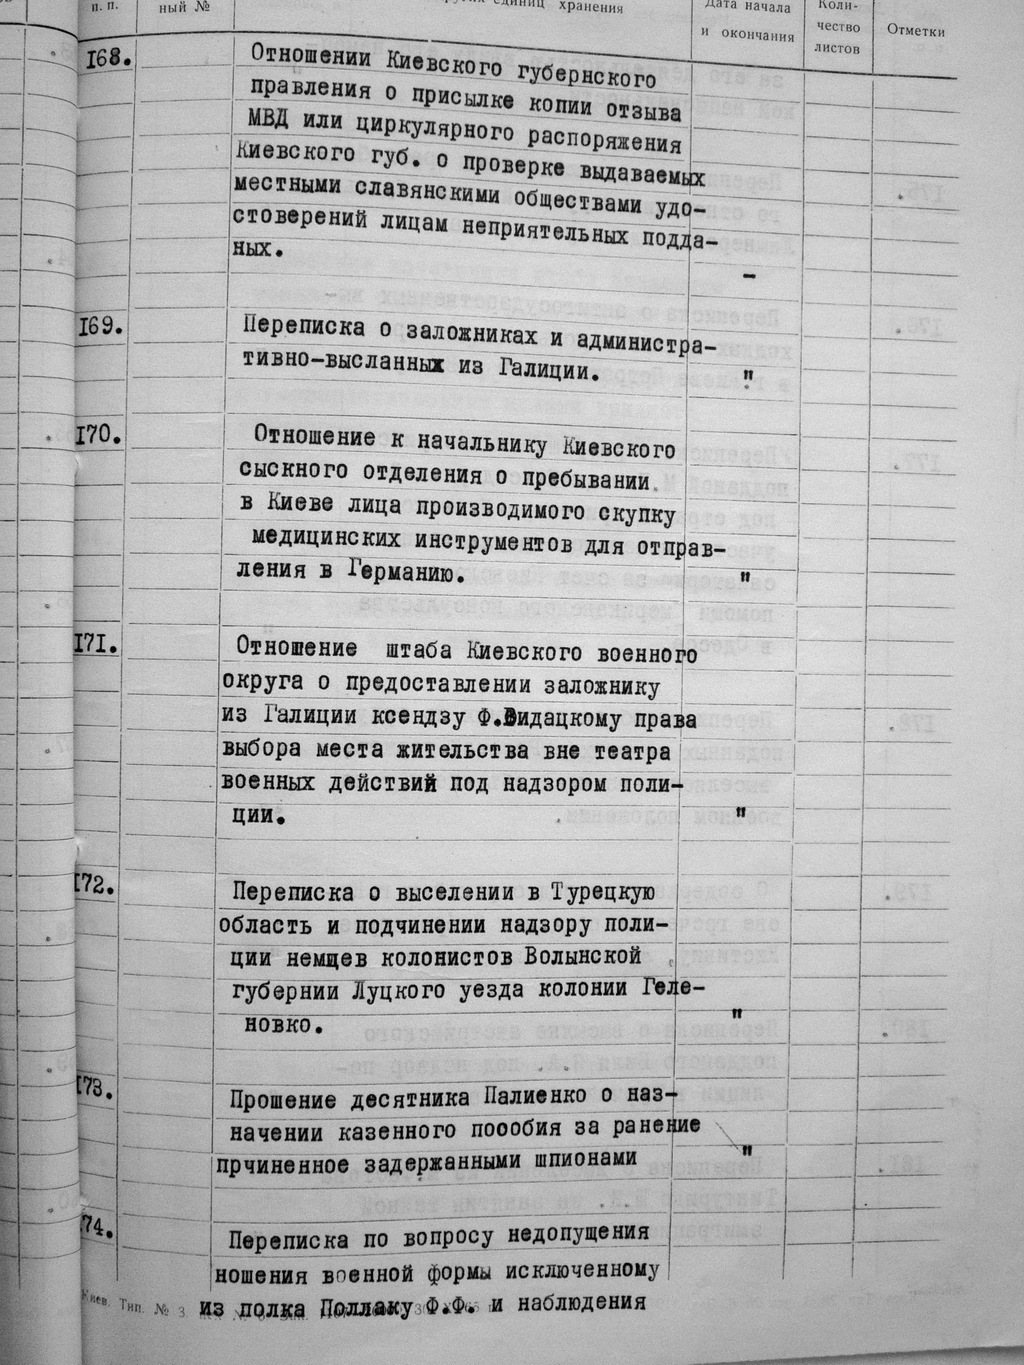 п. п.
ный №
единиц хранения
Дата начала
и окончания
Коли-
чество
листов
Отметки
168.
Отношении Киевского губернского
правления о присылке копии отзыва
МВД или циркулярного распоряжения
Киевского губ. о проверке выдаваемых
местными славянскими обществами удо-
стоверений лицам неприятельных подда-
ных.
-
169.
Переписка о заложниках и администра-
тивно-высланных из Галиции.
"
170.
Отношение к начальнику Киевского
сыскного отделения о пребывании
в Киеве лица производимого скупку
медицинских инструментов для отправ-
ления в Германию.
"
171.
Отношение штаба Киевского военного
округа о предоставлении заложнику
из Галиции ксендзу Ф.Видацкому права
выбора места жительства вне театра
военных действий под надзором поли-
ции.
"
172.
Переписка о выселении в Турецкую
область и подчинении надзору поли-
ции немцев колонистов Волынской
губернии Луцкого уезда колонии Геле-
новко.
"
173.
Прошение десятника Палиенко о наз-
начении казенного поообия за ранение
прчиненное задержанными шпионами
"
74.
Переписка по вопросу недопущения
ношения военной формы исключенному
из полка Поллаку Ф.Ф. и наблюдения
Киев. Тип. № 3.